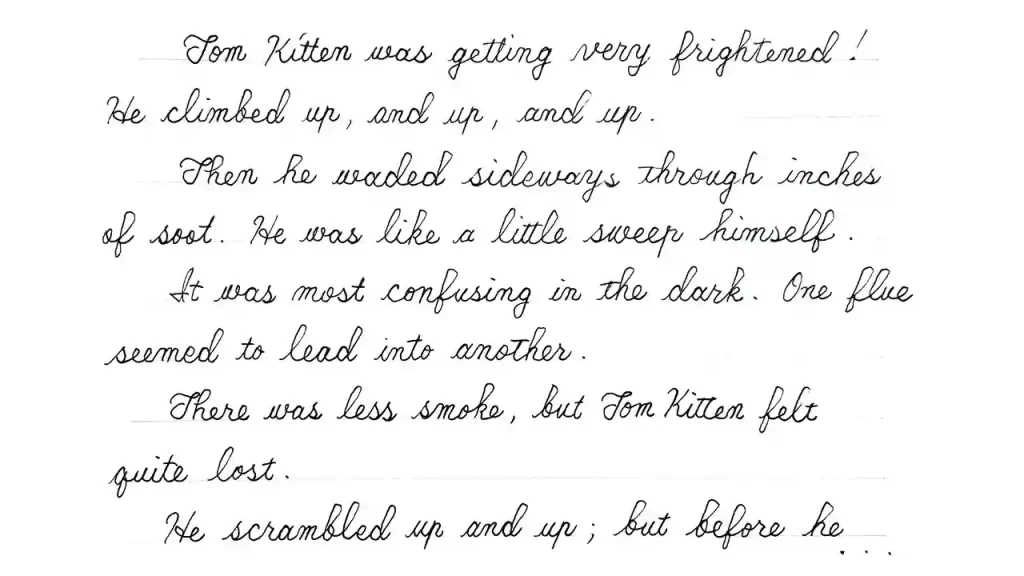 Tom Kitten was getting very frightened!
He climbed up, and up, and up.
Then he waded sideways through inches
of soot. He was like a little sweep himself.
It was most confusing in the dark. One flue
seemed to lead into another.
There was less smoke, but Tom Kitten felt
quite lost.
He scrambled up and up; but before he